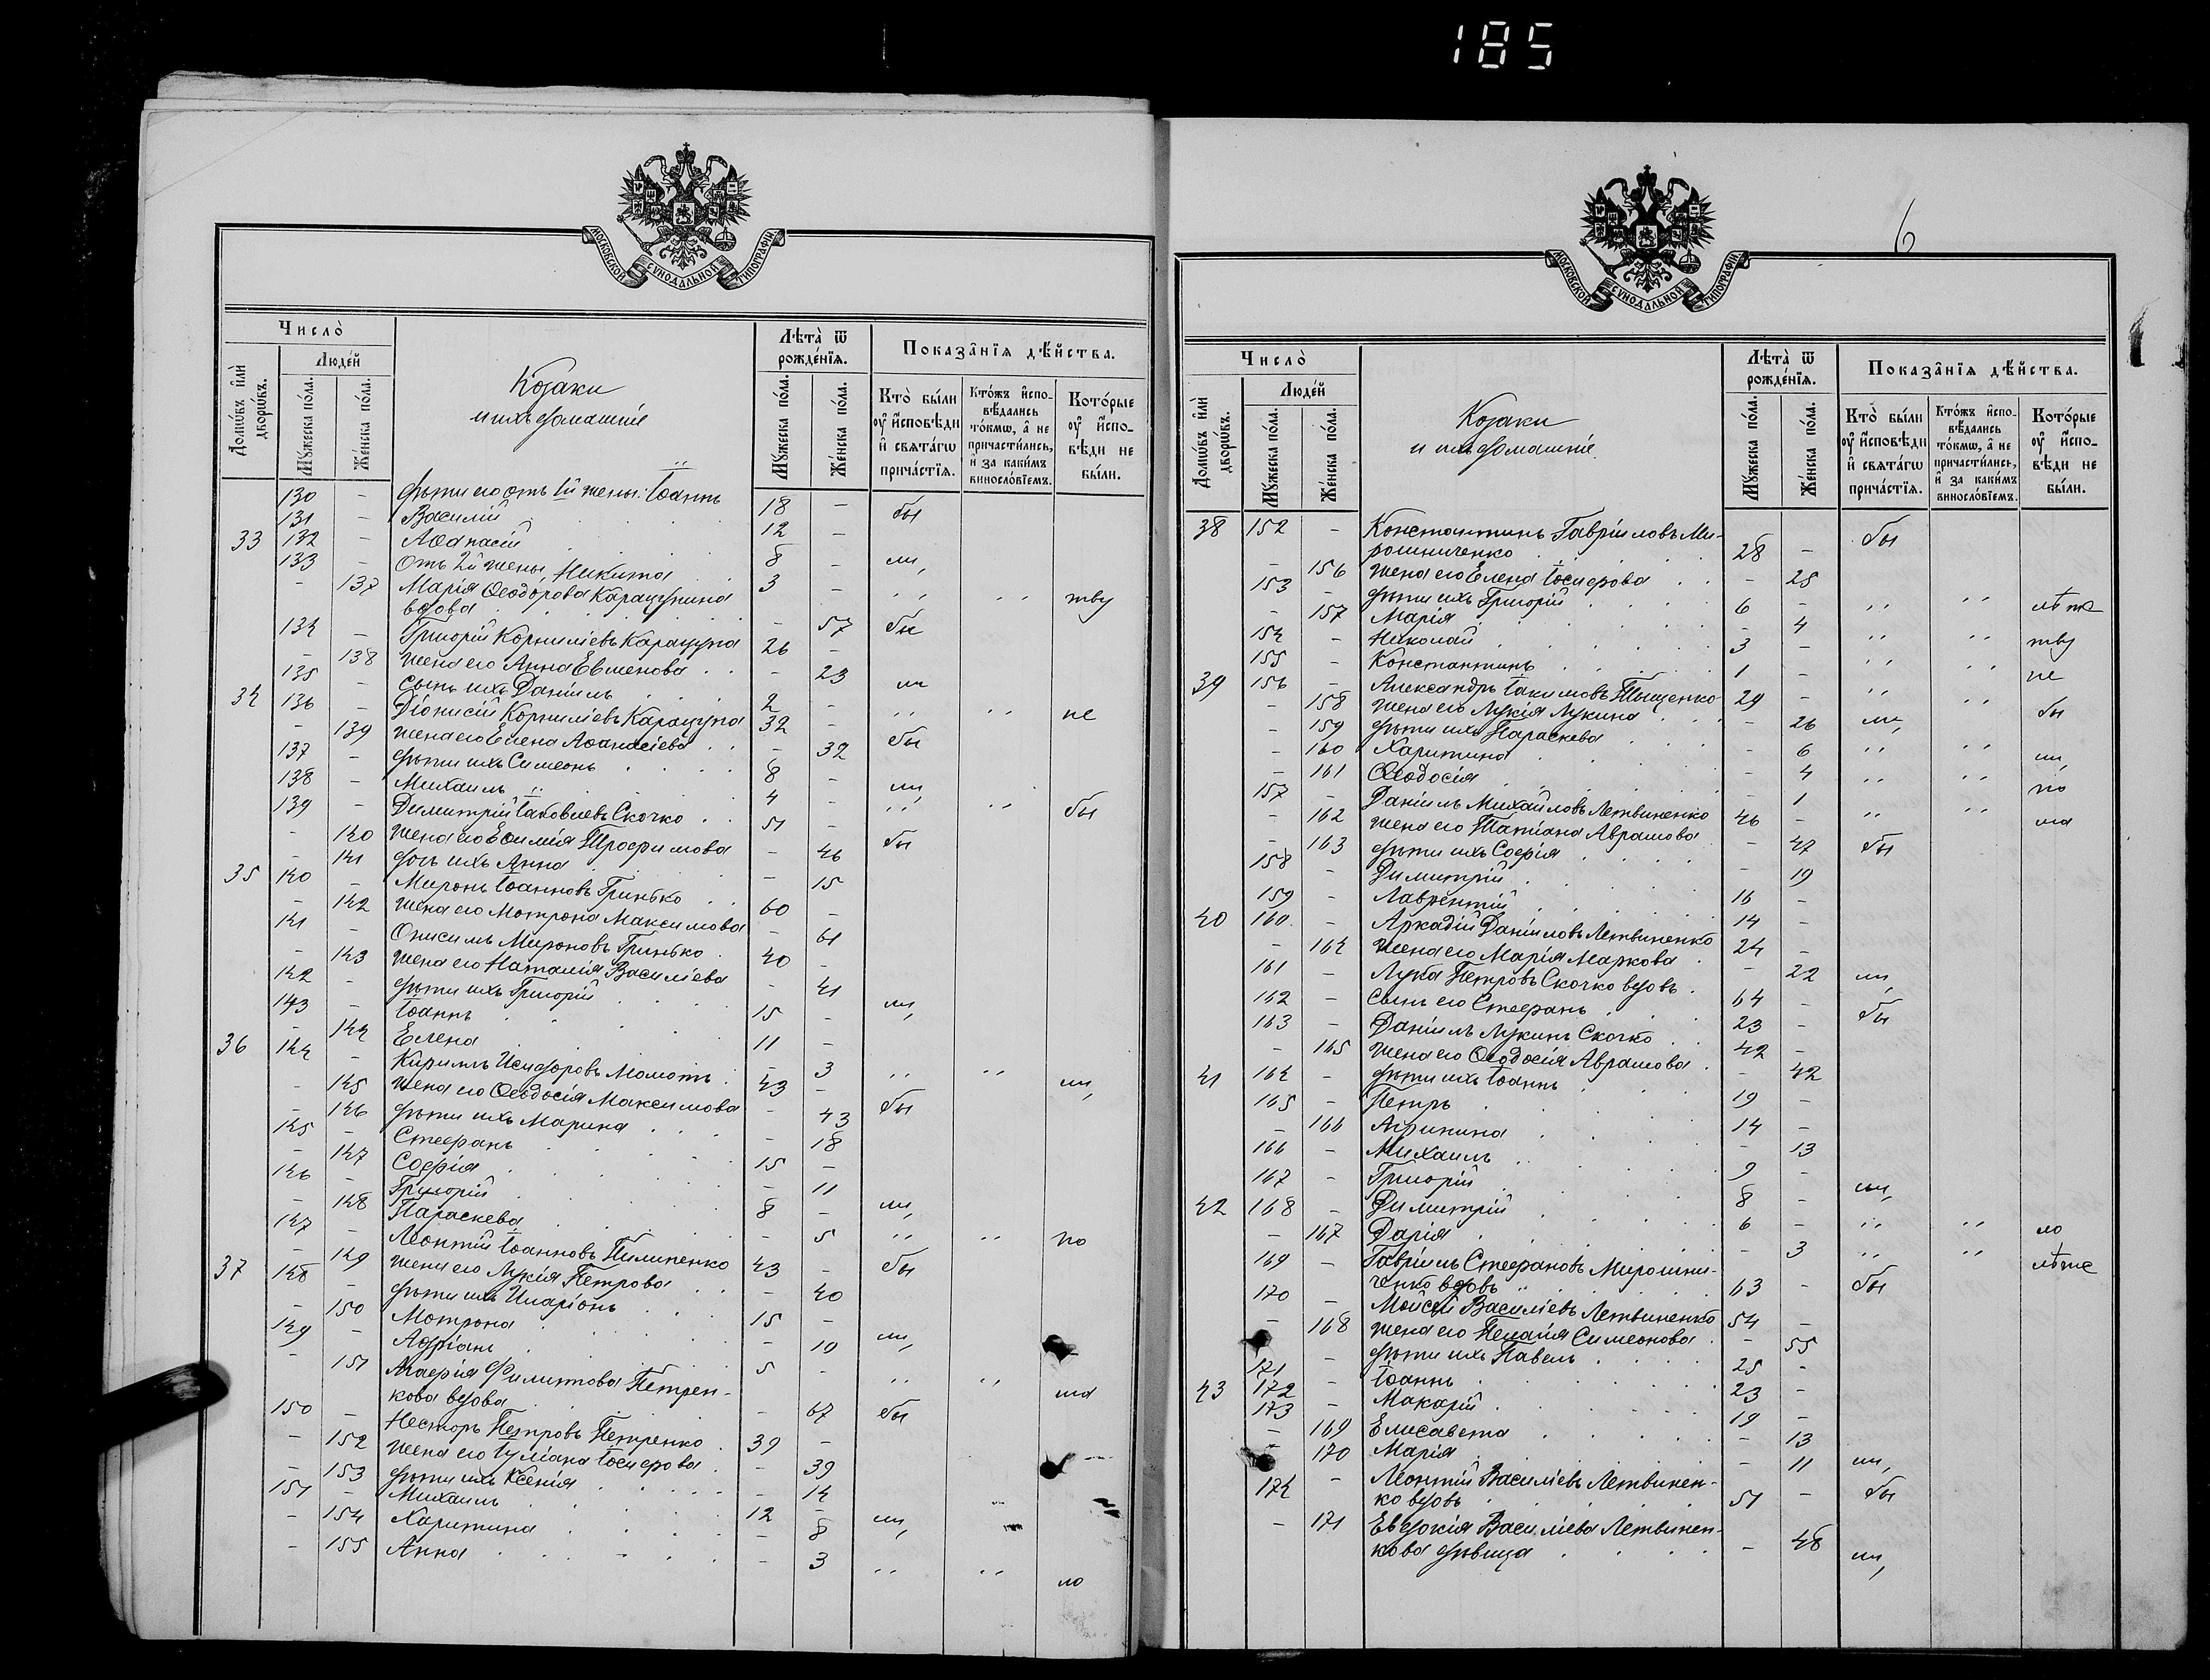 185
МОСКОВСКОЙ СѴНОДАЛЬНОЙ ТИПОГРАФІИ
Число̀
Домѡ́въ и҆лѝ дворѡ́въ.
Люде́й
Мꙋ́жеска по́ла.
Же́нска по́ла.
Козаки
и ихъ домашніе
Лѣта̀ ѿ рожде́нїѧ.
Мꙋ́жеска по́ла.
Же́нска по́ла.
Показа̑нїѧ дѣ́йства.
Кто̀ бы́ли оу҆ и҆сповѣ́ди и҆ свѧта́гѡ прича́стїѧ.
Кто́жъ и҆сповѣ́дались то́кмѡ, а҆ не причасти́лись, и҆ за каки́мъ виносло́вїемъ.
Кото́рые оу҆ и҆сповѣ́ди не бы́ли.
130 - дѣти его отъ 1й жены: Іоаннъ 18 - бы
131 - Василій 12 -
33 132 - Аѳанасій 8 - ли,
133 - Отъ 2й жены Никита 3 - ,, ,, тву
- 137 Марія Ѳеодорова Карацупина
вдова - 57 бы
134 - Григорій Корниліевъ Карацупа 26 -
- 138 жена его Анна Евменова - 23 ли
135 - сынъ ихъ Даніилъ 2 - ,, ,, не
34 136 - Діонисій Корниліевъ Карацупа 32 - бы
- 139 жена его Елена Аѳанасіева - 32
137 - дѣти ихъ Симеонъ 8 - ли,
138 - Михаилъ 4 - ,, ,, бы
139 - Димитрій Іаковлевъ Скочко 51 - бы
- 140 жена его Евѳимія Трофимова - 46
- 141 дочь ихъ Анна - 15
35 140 - Миронъ Іоанновъ Гринько 60 -
- 142 жена его Мотрона Максимова - 61
141 - Онисимъ Мироновъ Гринько 40 -
- 143 жена его Наталія Василіева - 41
142 - дѣти ихъ Григорій 15 - ли,
143 - Іоаннъ 11 -
- 144 Елена - 3 ,, ,, ли,
36 144 - Кириллъ Исидоровъ Момотъ 43 - бы
- 145 жена его Ѳеодосія Максимова - 43
- 146 дѣти ихъ Марина - 18
145 - Стефанъ 15 -
- 147 Софія - 11
146 - Григорій 8 - ли,
- 148 Параскева - 5 ,, ,, по
147 - Леонтій Іоанновъ Пилипенко 43 - бы
- 149 жена его Лукія Петрова - 40
37 148 - дѣти ихъ Иларіонъ 15 -
- 150 Мотрона - 10 ли,
149 - Адріанъ 5 - ,, ,, ма
- 151 Марія Филиппова Петрен-
кова вдова - 67 бы
150 - Несторъ Петровъ Петренко 39 -
- 152 жена его Іуліана Іосифова - 39
- 153 дѣти ихъ Ксенія - 14
151 - Михаилъ 12 - ли,
- 154 Харитина - 8
- 155 Анна - 3 ,, ,, ло
6
МОСКОВСКОЙ СѴНОДАЛЬНОЙ ТИПОГРАФІИ
Число̀
Домѡ́въ и҆лѝ дворѡ́въ.
Люде́й
Мꙋ́жеска по́ла.
Же́нска по́ла.
Козаки
и ихъ домашніе.
Лѣта̀ ѿ рожде́нїѧ.
Мꙋ́жеска по́ла.
Же́нска по́ла.
Показа̑нїѧ дѣ́йства.
Кто̀ бы́ли оу҆ и҆сповѣ́ди и҆ свѧта́гѡ прича́стїѧ.
Кто́жъ и҆сповѣ́дались то́кмѡ, а҆ не причасти́лись, и҆ за каки́мъ виносло́вїемъ.
Кото́рые оу҆ и҆сповѣ́ди не бы́ли.
38 152 - Константинъ Гавріиловъ Ми-
рошниченко 28 - бы
- 156 жена его Елена Іосифова - 25
153 - дѣти ихъ Григорій 6 - ,, ,, лѣт
- 157 Марія - 4 ,, ,, тву
154 - Николай 3 - ,, ,, не
155 - Константинъ 1 - ,, ,, бы
39 156 - Александръ Іакимовъ Тыщенко 29 -
- 158 жена его Лукія Лукина - 26 ли,
- 159 дѣти ихъ Параскева - 6 ,, ,, ли,
- 160 Харитина - 4 ,, ,, по
- 161 Ѳеодосія - 1 ,, ,, ма
157 - Даніилъ Михайловъ Летвиненко 46 -
- 162 жена его Татіана Аврамова - 47 бы
- 163 дѣти ихъ Софія - 19
158 - Димитрій 16 -
159 - Лаврентій 14 -
40 160 - Аркадій Даніиловъ Летвиненко 24 -
- 164 жена его Марія Маркова - 22 ли,
161 - Лука Петровъ Скочко вдовъ 64 - бы
162 - сынъ его Стефанъ 23 -
163 - Даніилъ Лукинъ Скочко 42 -
- 165 жена его Ѳеодосія Аврамова - 42
41 164 - дѣти ихъ Іоаннъ 19 -
165 - Петръ 14 -
- 166 Агрипина - 13
166 - Михаилъ 9 - ли,
167 - Григорій 8 -
42 168 - Димитрій 6 - ,, ,, ло
- 167 Дарія - 3 ,, ,, лѣт
169 - Гавріилъ Стефановъ Мирошни-
ченко вдовъ 63 - бы
170 - Моисей Василіевъ Летвиненко 54 -
- 168 жена его Пелагія Симеонова - 55
171 - дѣти ихъ Павелъ 25 -
43 172 - Іоаннъ 23 -
173 - Макарій 19 -
- 169 Елисавета - 13
- 170 Марія - 11 ли,
174 - Леонтій Василіевъ Летвинен-
ко вдовъ 51 - бы
- 171 Евдокія Василіева Летвинен-
кова дѣвица - 48 ли,